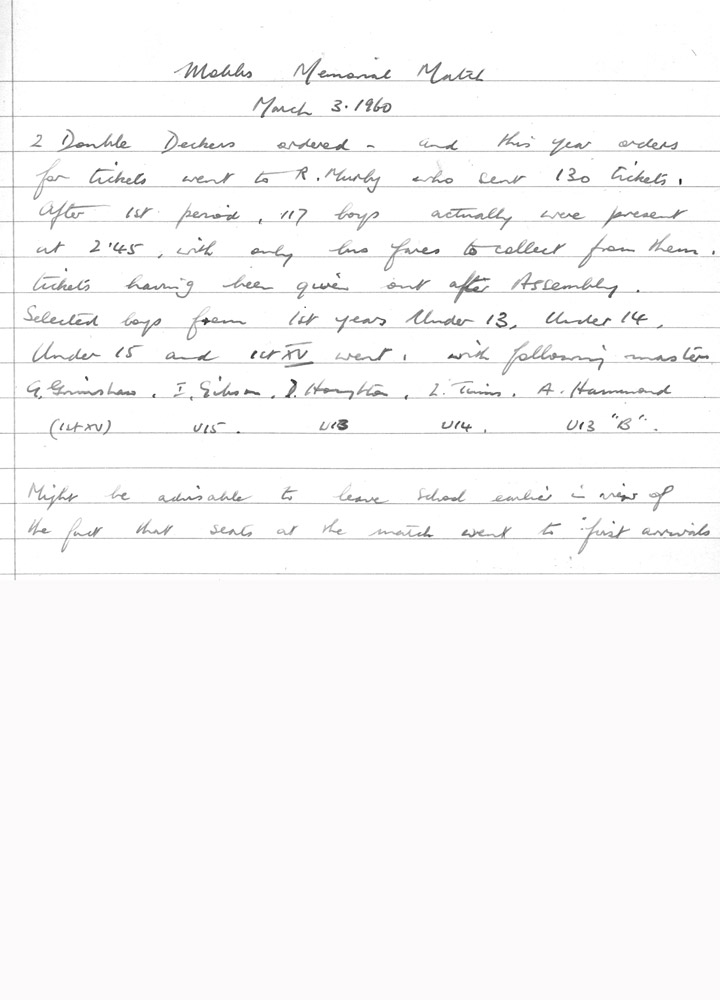 Mobbs Memorial Match
March 3. 1960
2 Double Deckers ordered - and this year orders
for tickets went to R. Murby who sent 130 tickets.
After 1st period, 117 boys actually were present
at 2'45, with only bus fares to collect from them.
tickets having been given out after Assembly.
Selected boys from 1st years Under 13, Under 14,
Under 15 and 1st XV went, with following masters
G. Grimshaw, I. Gibson, D. Houghton, L. Timms, A. Hammond
(1st XV) U15. U13 U14. U13 "B".
Might be advisable to leave School earlier in view of
the fact that seats at the match went to "first arrivals